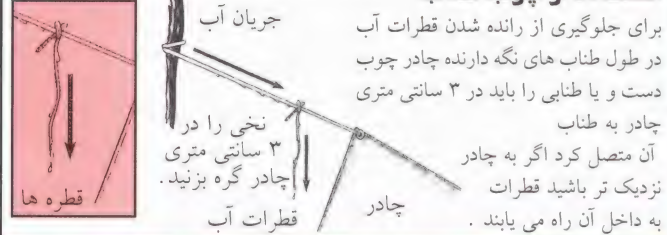 برای جلوگیری از رانده شدن قطرات آب
در طول طناب های نگه دارنده چادر چوب
دست و یا طنابی را باید در ۳ سانتی متری
چادر به طناب
آن متصل کرد اگر به چادر
نزدیک تر باشید قطرات
به داخل آن راه می یابند .
جریان آب
نخی را در
۳ سانتی متری
چادر گره بزنید .
قطرات آب
چادر
قطره ها